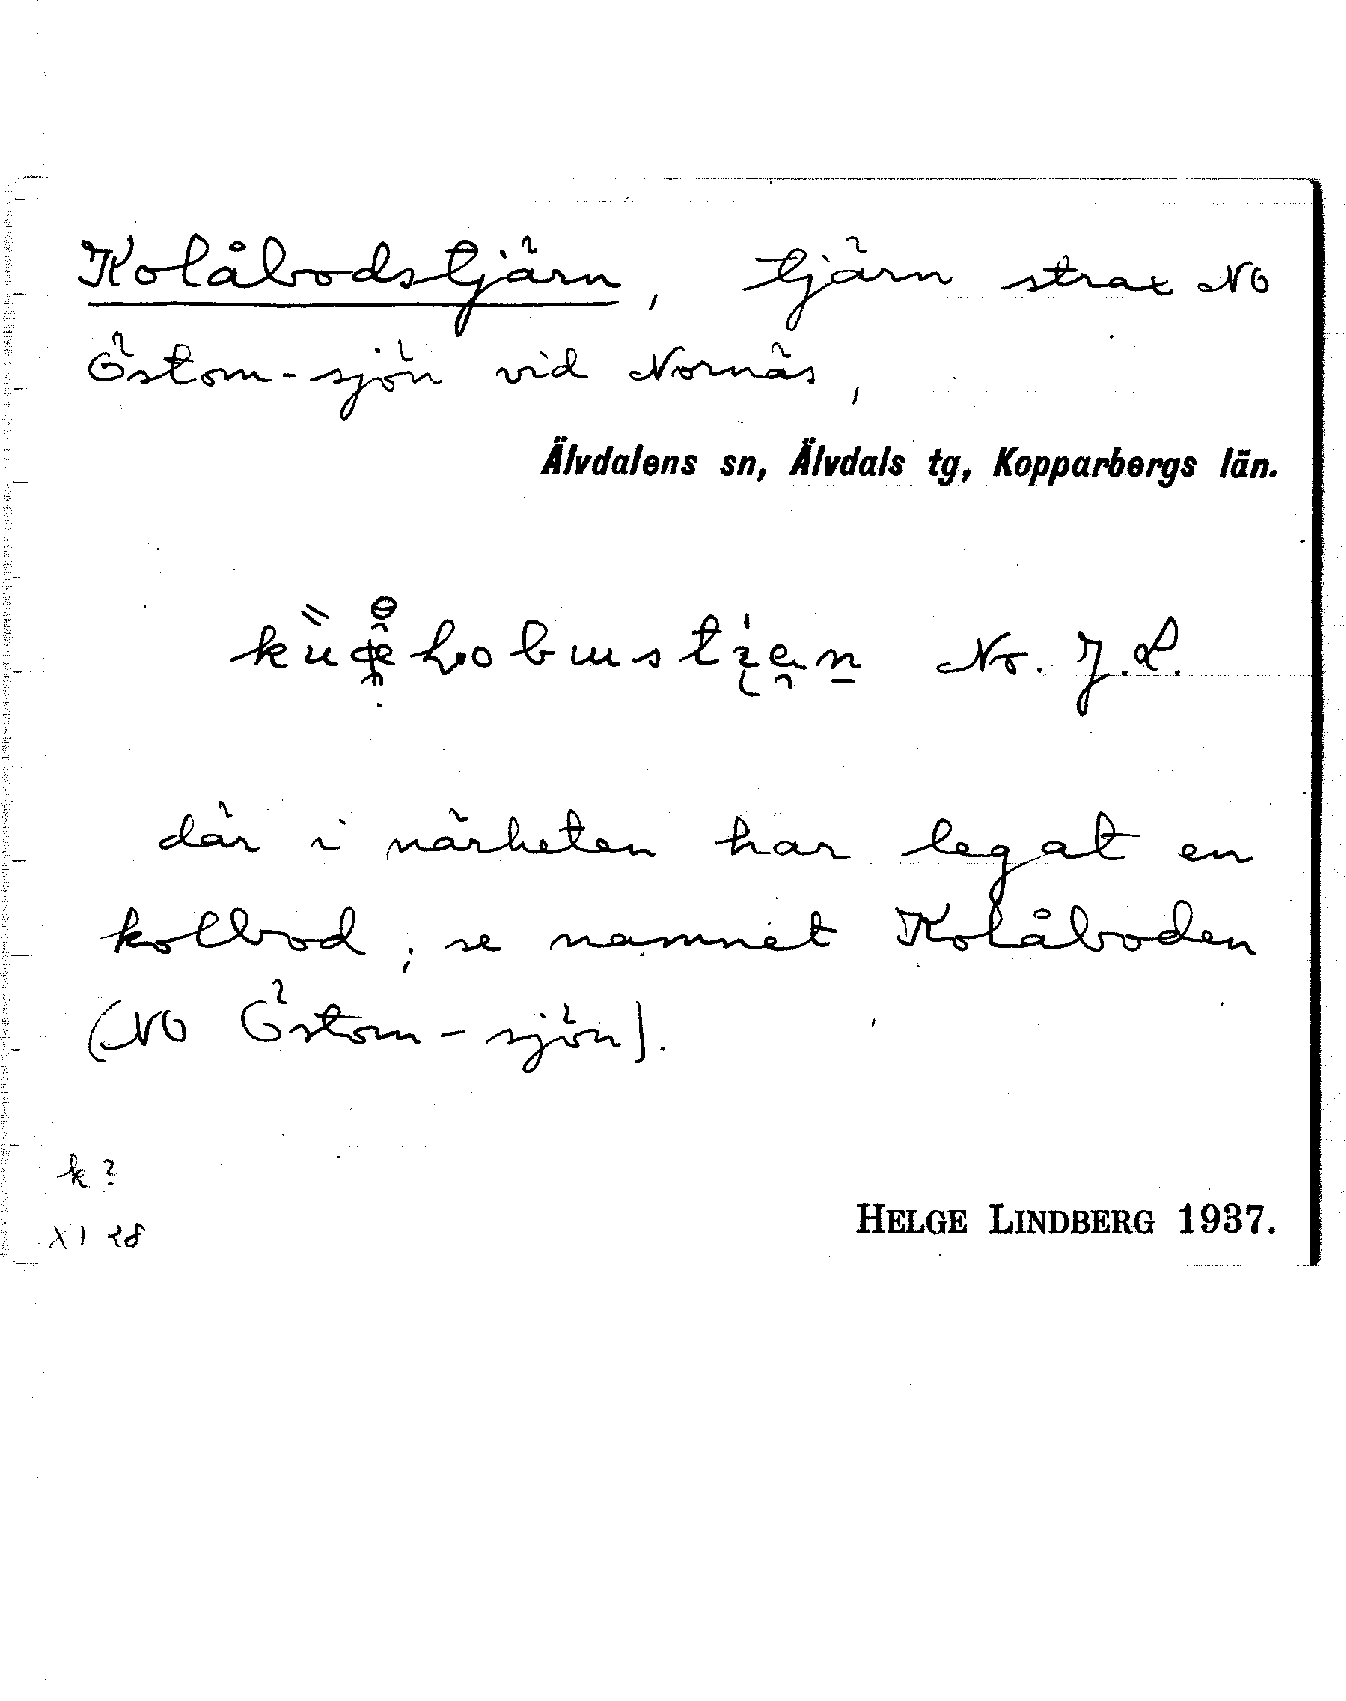 Kolåbodstjärn, tjärn strax NO
Östom-sjön vid Nornäs,
Älvdalens sn, Älvdals tg, Kopparbergs län.
No. J.L.
där i närheten har legat en
kolbod; se namnet Kolåboden
(NO Östom-sjön).
k?
XI 28
HELGE LINDBERG 1937.